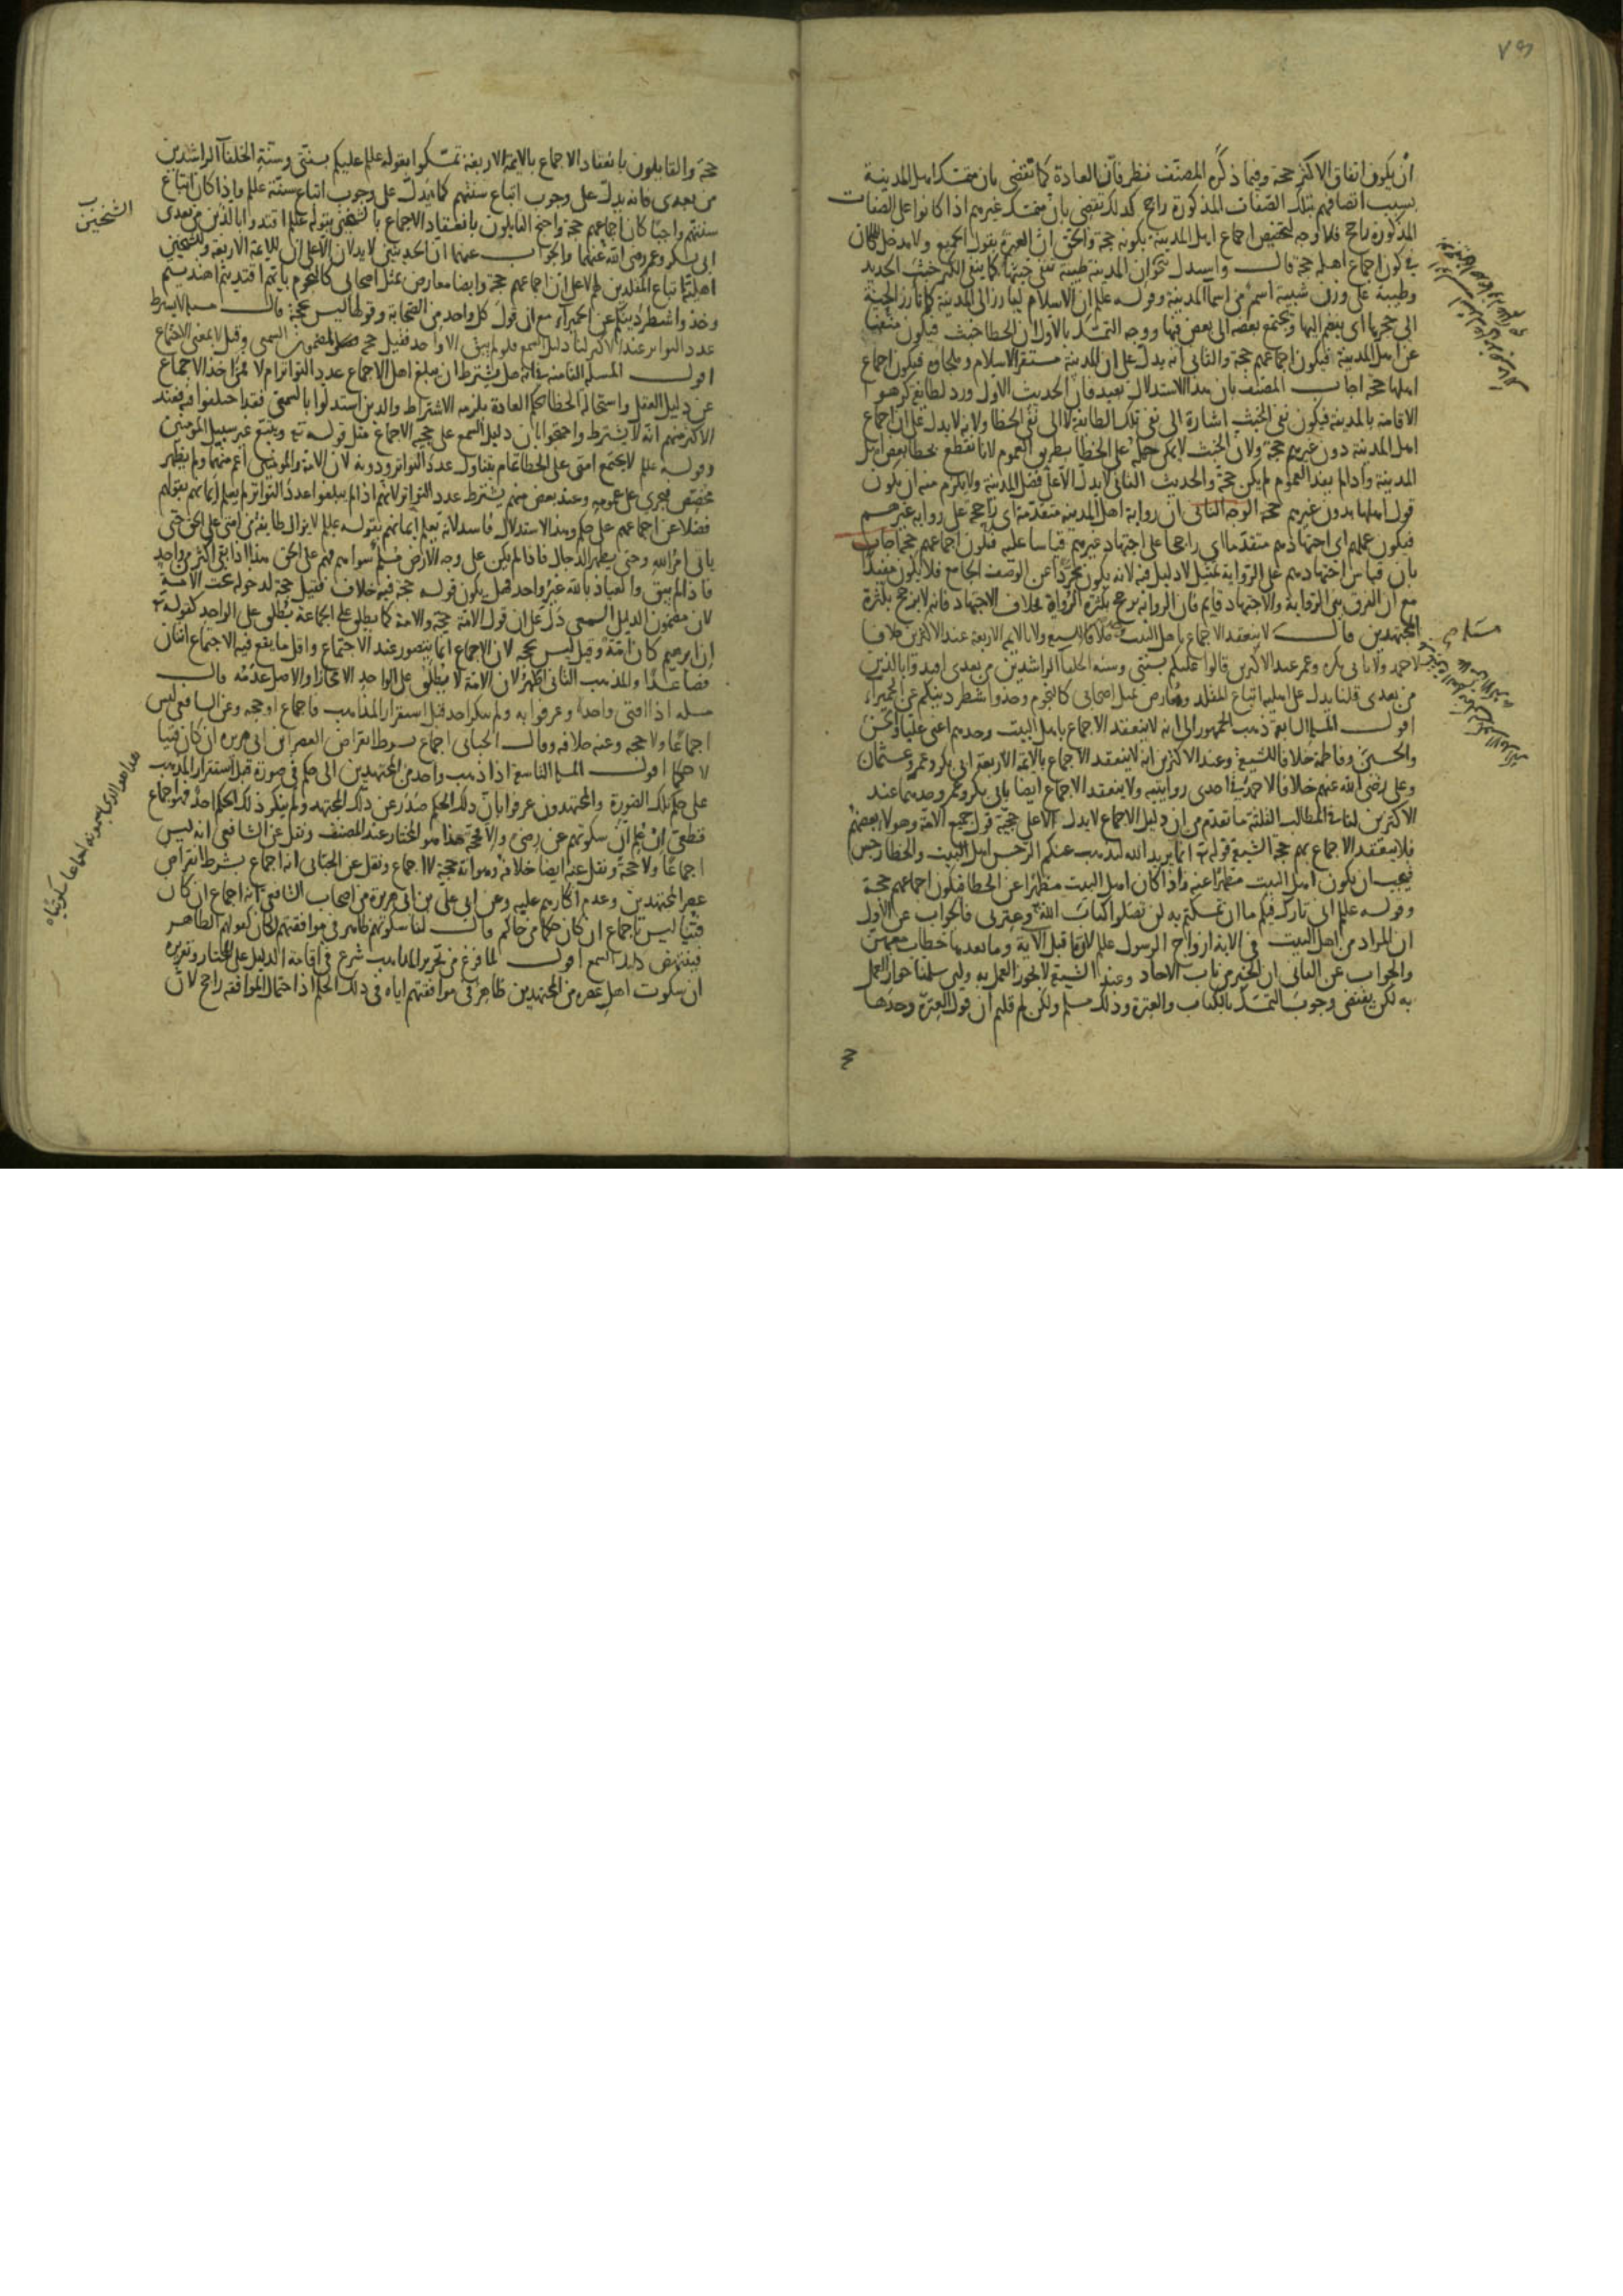 أن يكون اتفاق الاكثر حجة وفيما ذكره المصنف نظر فان العادة كما تقضى بان متمسك اهل المدينة
بسبب اتصافهم بتلك الصفات المذكورة راجح كذلك تقضى بان متمسك غيرهم اذا كانوا على الصفات
المذكورة راجح فلا وجه لتخصيص اجماع اهل المدينة بكونه حجة والحق ان العبرة بقول الجميع ولا مدخل للمكان
فى كون اجماع اهله حجة قال واستدل بنحو ان المدينة طيبة تنفى خبثها كما ينفى الكير خبث الحديد
وطيبة على وزن شيبة اسم من اسما المدينة وقوله علم ان الاسلام ليأرز الى المدينة كما تأرز الحية
الى جحرها اى ينضم اليها ويجتمع بعضه الى بعض فيها ووجه التمسك بالاول ان الخطا خبث فيكون منفيا
عن اهل المدينة فيكون اجماعهم حجة والثانى انه يدل على ان المدينة مستقر الاسلام فيكون اجماع
اهلها حجة اجاب المصنف بان هذا الاستدلال بعيد فان الحديث الاول ورد لطايفة كرهوا
الاقامة بالمدينة فيكون نفى الخبث اشارة الى نفى تلك الطايفة لا الى نفى الخطا ولانه لا يدل على ان اجماع
اهل المدينة دون غيرهم حجة ولان الخبث لا يمكن حمله على الخطا بطريق العموم لانا نقطع بخطا بعض اهل
المدينة واذا لم يفد العموم لم يكن حجة والحديث الثانى لا يدل الا على فضل المدينة ولا يلزم منه ان يكون
قول اهلها بدون غيرهم حجة الوجه الثانى ان رواية اهل المدينة متقدمة اى راجحة على رواية غيرهم
فيكون عملهم اى اجتهادهم متقدما اى راجحا على اجتهاد غيرهم قياسا عليه فيكون اجماعهم حجة اجاب
بان قياس اجتهادهم على الرواية تمثيل لا دليل فيه لانه يكون مجردا عن الوصف الجامع فلا يكون مفيدا
مع ان الفرق بين الرواية والاجتهاد قايم فان الرواية ترجح بكثرة الرواة بخلاف الاجتهاد فانه لا يرجح بكثرة
المجتهدين قال لا ينعقد الاجماع باهل البيت خلافا للشيعة ولا بالايمة الاربعة عند الاكثرين خلافا
لاحمد ولا بابى بكر وعمر عند الاكثرين قالوا عليكم بسنتى وسنة الخلفا الراشدين من بعدى اقتدوا بالذين
من بعدى قلنا يدل على اهلية اتباع المقلد ومعارض بمثل اصحابى كالنجوم وخذوا شطر دينكم عن الحميراء
اقول المسئلة السابعة ذهب الجمهور الى انه لا ينعقد الاجماع باهل البيت وحدهم اعنى عليا والحسن
والحسين وفاطمة خلافا للشيعة وعند الاكثرين انه لا ينعقد الاجماع بالايمة الاربعة ابى بكر وعمر وعثمان
وعلى رضى الله عنهم خلافا لاحمد فى احدى روايتيه ولا ينعقد الاجماع ايضا بابى بكر وعمر وحدهما عند
الاكثرين لنا فى المطالب الثلثة ما تقدم من ان دليل الاجماع لا يدل الا على حجية قول جميع الامة وهولاء بعضهم
فلا ينعقد الاجماع بهم حجة الشيعة قوله تع انما يريد الله ليذهب عنكم الرجس اهل البيت والخطا رجس
فيجب ان يكون اهل البيت مطهرا عنه واذا كان اهل البيت مطهرا عن الخطا فيكون اجماعهم حجة
وقوله علم انى تارك فيكم ما ان تمسكتم به لن تضلوا كتاب الله وعترتى فالجواب عن الاول
ان المراد من اهل البيت فى الاية ازواج الرسول علم لان ما قبل الآية وما بعدها خطاب معهن
والجواب عن الثانى ان الخبر من باب الآحاد وعند الشيعة لا يجوز العمل به ولئن سلمنا جواز العمل
به لكن يقتضى وجوب التمسك بالكتاب والعترة وذلك مسلم ولكن لم قلتم ان قول العترة وحدها
حجة والقايلون بانعقاد الاجماع بالايمة الاربعة تمسكوا بقوله علم عليكم بسنتى وسنة الخلفآ الراشدين
من بعدى فانه يدل على وجوب اتباع سنتهم كما يدل على وجوب اتباع سنته علم واذا كان اتباع
سنتهم واجبا كان اجماعهم حجة واحتج القايلون بانعقاد الاجماع بالشيخين بقوله علم اقتدوا بالذين من بعدى
الشيخين
ابى بكر وعمر رضى الله عنهما والجواب عنهما ان الحديثين لا يدلان الا على ان للايمة الاربعة وللشيخين
اهلية اتباع المقلدين لهم لا على ان اجماعهم حجة وايضا معارض بمثل اصحابى كالنجوم بايهم اقتديتم اهتديتم
وخذوا شطر دينكم عن الحميراء مع ان قول كل واحد من الصحابة وقولها ليس بحجة قال مسئلة لا يشترط
عدد التواتر عند الاكثر لنا دليل السمع فلو لم يبق الا واحد فقيل حجة لمضمون السمعى وقيل لا لمعنى الاجتماع
اقول المسئلة الثامنة فى انه هل يشترط ان يبلغ اهل الاجماع عدد التواتر ام لا فمن اخذ الاجماع
عن دليل العقل واستحالة الخطا بحكم العادة يلزمه الاشتراط والذين استدلوا بالسمعى فقد اختلفوا فيه فعند
الاكثر منهم انه لا يشترط واحتجوا بان دليل السمع على حجية الاجماع مثل قوله تع ويتبع غير سبيل المومنين
وقوله علم لا يجتمع امتى على الخطا عام يتناول عدد التواتر ودونه لان الامة والمومنين اعم منهما ولم يظهر
مخصص فيجرى على عمومه وعند بعض منهم يشترط عدد التواتر لانهم اذا لم يبلغوا عدد التواتر لم يعلم ايمانهم بقولهم
فضلا عن اجماعهم على حكم وهذا الاستدلال فاسد لانه يعلم ايمانهم بقوله علم لا يزال طايفة من امتى على الحق حتى
ياتى امر الله وحتى يظهر الدجال فاذا لم يكن على وجه الارض مسلم سواهم فهم على الحق هذا اذا بقى اكثر من واحد
فاذا لم يبق والعياذ بالله غير واحد فهل يكون قوله حجة فيه خلاف فقيل حجة لدخوله تحت الامة
لان مضمون الدليل السمعى دل على ان قول الامة حجة والامة كما يطلق على الجماعة يطلق على الواحد كقوله تع
ان ابرهيم كان امة وقيل ليس بحجة لان الاجماع انما يتصور عند الاجتماع واقل ما يقع فيه الاجتماع اثنان
فصاعدا والمذهب الثانى اظهر لان الامة لا يطلق على الواحد الا مجازا والاصل عدمه قال
مسئلة اذا افتى واحد وعرفوا به ولم ينكر احد قبل استقرار المذاهب فاجماع او حجة وعن الشافعى ليس
اجماعا ولا حجة وعنه خلافه وقال الجبائى اجماع بشرط انقراض العصر ابن ابى هريرة ان كان فتيا
لا حكما اقول المسئلة التاسعة اذا ذهب واحد من المجتهدين الى حكم فى صورة قبل استقرار المذهب
على حكم تلك الصورة والمجتهدون عرفوا بان ذلك الحكم صدر عن ذلك المجتهد ولم ينكر ذلك الحكم احد فهو اجماع
هذا هو الذى يسمونه اجماعا سكوتيا
قطعى ان علم ان سكوتهم عن رضى والا فحجة هذا هو المختار عند المصنف ونقل عن الشافعى انه ليس
اجماعا ولا حجة ونقل عنه ايضا خلافه وهو انه حجة لا اجماع ونقل عن الجبائى انه اجماع بشرط انقراض
عصر المجتهدين وعدم انكارهم عليه وعن ابى على بن ابى هريرة من اصحاب الشافعى انه اجماع ان كان
فتيا ليس باجماع ان كان حكما من حاكم قال لنا سكوتهم ظاهر فى موافقتهم فكان كقولهم الظاهر
فينتهض دليل السمع اقول لما فرغ من تحرير المذاهب شرع فى اقامة الدليل على المختار وتقريره
ان سكوت اهل عصره من المجتهدين ظاهر فى موافقتهم اياه فى ذلك الحكم اذ احتمال الموافقة راجح لان